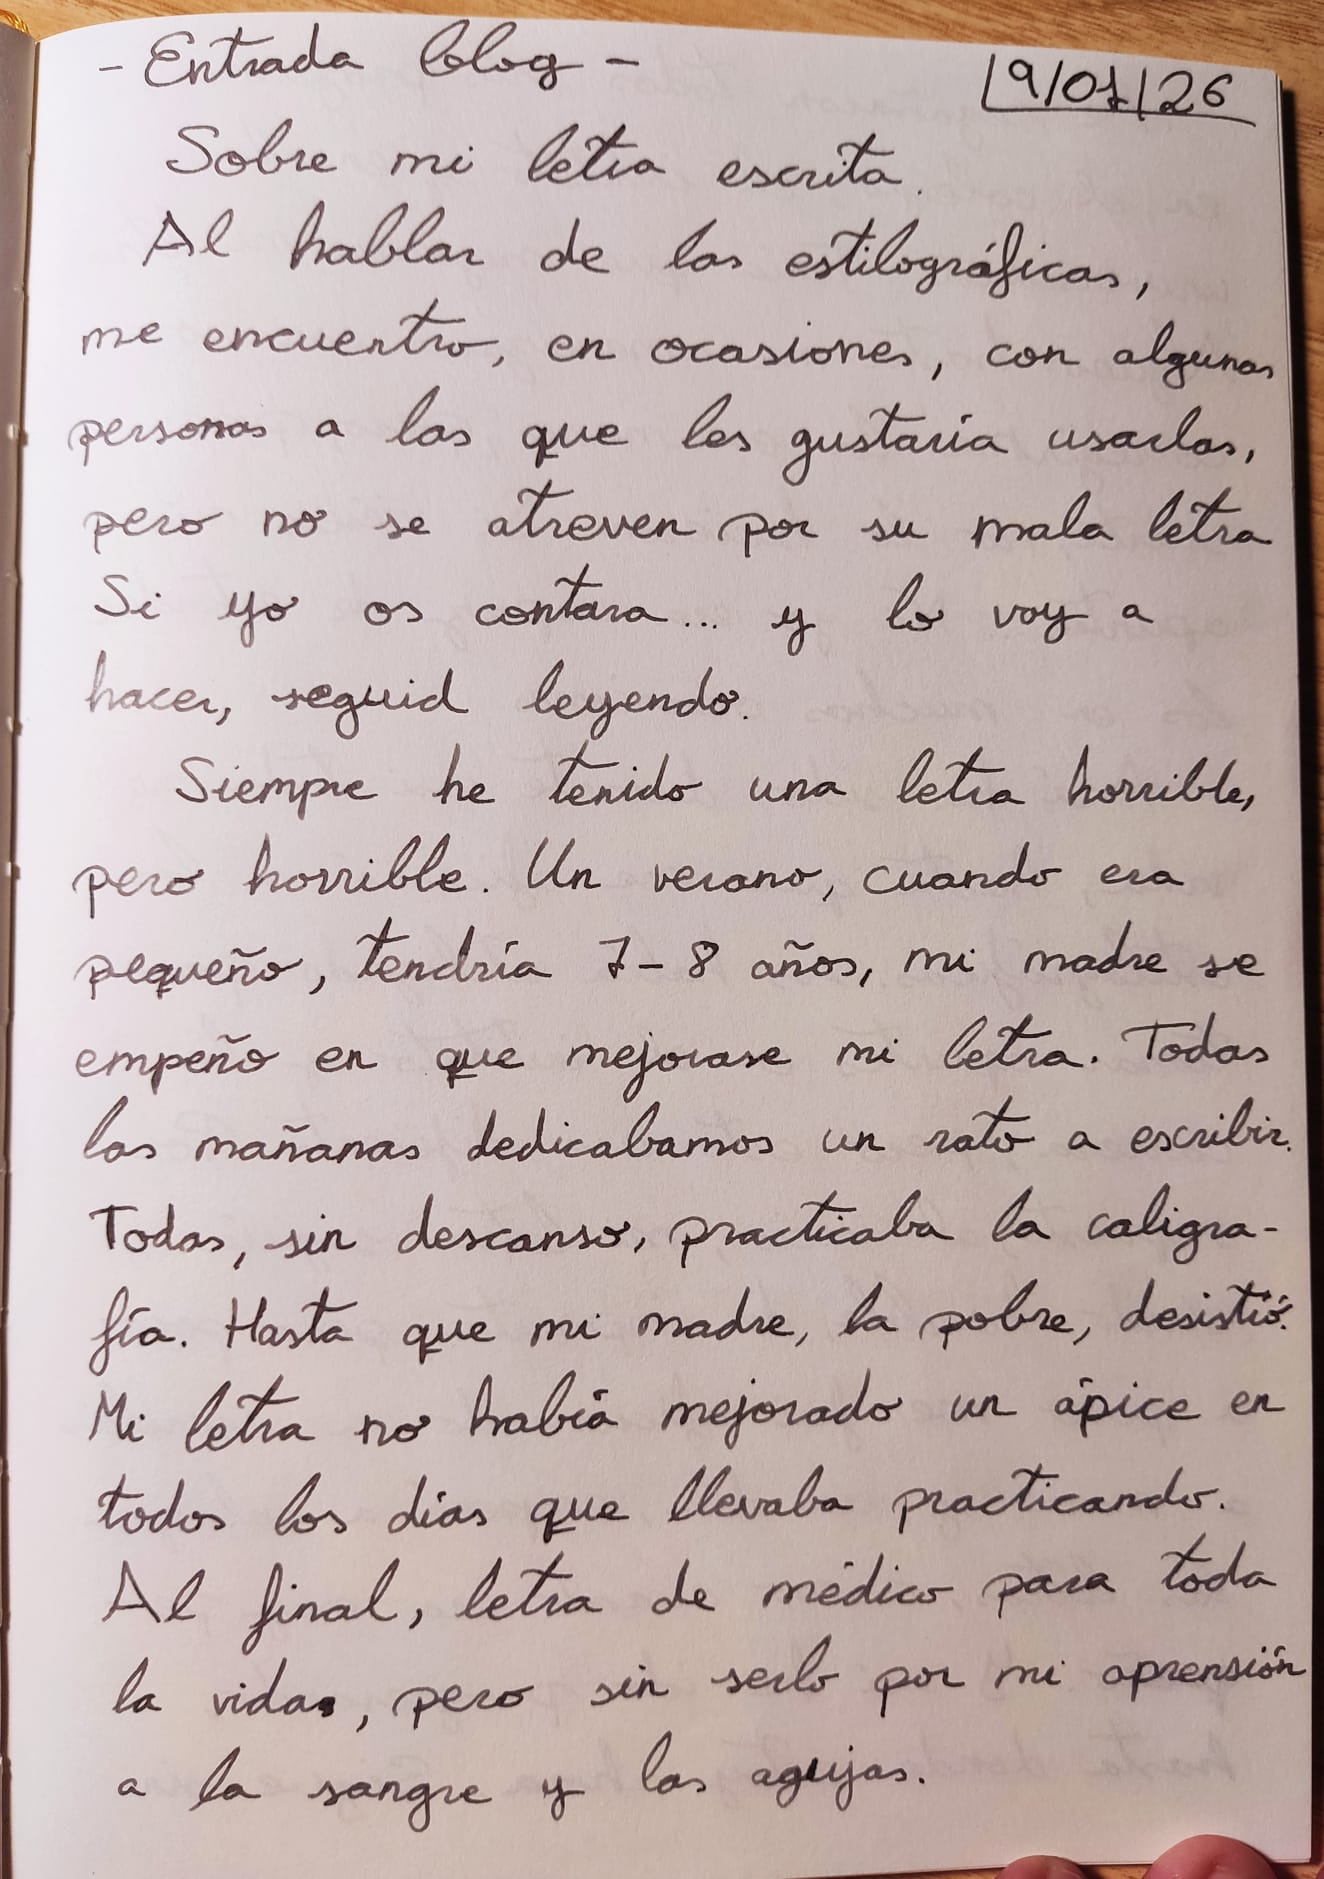 - Entrada blog -
9/01/26
Sobre mi letra escrita.
Al hablar de las estilográficas,
me encuentro, en ocasiones, con algunas
personas a las que les gustaría usarlas,
pero no se atreven por su mala letra
Si yo os contara... y lo voy a
hacer, seguid leyendo.
Siempre he tenido una letra horrible,
pero horrible. Un verano, cuando era
pequeño, tendría 7-8 años, mi madre se
empeño en que mejorase mi letra. Todas
las mañanas dedicabamos un rato a escribir.
Todas, sin descanso, practicaba la caligra-
fía. Hasta que mi madre, la pobre, desistió.
Mi letra no había mejorado un ápice en
todos los días que llevaba practicando.
Al final, letra de médico para toda
la vida, pero sin serlo por mi aprensión
a la sangre y las agujas.